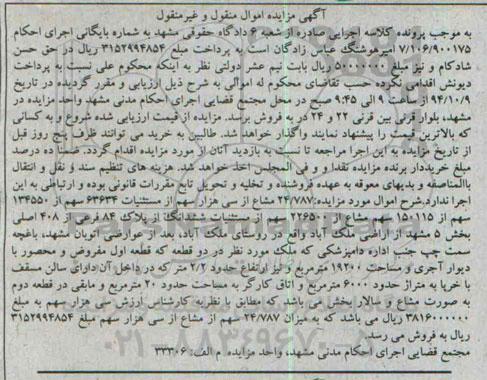 آگهی مزایده اموال منقول و غیرمنقول
به موجب پرونده کلاسه اجرایی صادره از شعبه ۶ دادگاه حقوقی مشهد به شماره بایگانی اجرای احکام
۷/۱۰۶/۹۰۰۱۷۵ امیرهوشنگ عباس زادگان است به پرداخت مبلغ ۳۱۵۲۹۹۴۸۵۴ ریال در حق حسن
شادکام و نیز مبلغ ۵۰۰۰۰۰۰۰ ریال بابت نیم عشر دولتی نظر به اینکه محکوم علی نسبت به پرداخت
دیونش اقدامی نکرده حسب تقاضای محکوم له اموالی به شرح ذیل ارزیابی و مقرر گردیده در تاریخ
۹۴/۱۰/۹ از ساعت ۹ الی ۹:۴۵ صبح در محل مجتمع قضایی اجرای احکام مدنی مشهد واحد مزایده در
مشهد، بلوار قرنی بین قرنی ۲۲ و ۲۴ در به فروش برسد. مزایده از قیمت ارزیابی شده شروع و به کسانی
که بالاترین قیمت را پیشنهاد نمایند واگذار خواهد شد. طالبین به خرید می توانند ظرف پنج روز قبل
از تاریخ مزایده به این اجرا مراجعه تا نسبت به بازدید آنان از مورد مزایده اقدام گردد. ضمنا ده درصد
مبلغ خریدار برنده مزایده نقدا و فی المجلس اخذ خواهد شد. هزینه های تنظیم سند و نقل و انتقال
بالمناصفه و بدیهای معوقه به عهده فروشنده و تخلیه و تحویل تابع مقررات قانونی بوده و ارتباطی به این
اجرا ندارد.شرح اموال مورد مزایده:۲۴/۷۸۷ مشاع از سی هزار سهم از مستثنیات ۶۳۶۳۴ سهم از ۱۳۴۵۵۰
سهم از ۱۵۰۱۱۵ سهم مشاع از ۲۲۶۵۰۰ سهم از مستثنیات ششدانگ از پلاک ۸۴ فرعی از ۴۰۸ اصلی
بخش ۵ مشهد از اراضی ملک آباد واقع در روستای ملک آباد، بعد از عوارضی اتوبان مشهد، باغچه
سمت چپ جنب اداره دامپزشکی که ملک مورد نظر در دو قطعه که قطعه اول مفروض و محصور با
دیوار آجری و مساحت ۱۹۲۰۰ مترمربع و نیز ارتفاع حدود ۲/۲ متر که در داخل آن دارای سالن مسقف
با خرپا به متراژ حدود ۶۰۰۰ مترمربع و اتاق کارگر به مساحت حدود ۲۰ مترمربع و مابقی در قطعه دوم
به صورت مشاع و سالار بخش می باشد که مطابق با نظریه کارشناسی ارزش سی هزار سهم به مبلغ
۳۸۱۶۰۰۰۰۰۰ ریال می باشد که به میزان ۲۴/۷۸۷ سهم از مشاع از سی هزار سهم مبلغ ۳۱۵۲۹۹۴۸۵۴
ریال به فروش می رسد.
مجتمع قضایی اجرای احکام مدنی مشهد، واحد مزایده م الف: ۳۳۳۰۶
۰۲۱-۸۸۳۴۹۶۷۰-۵